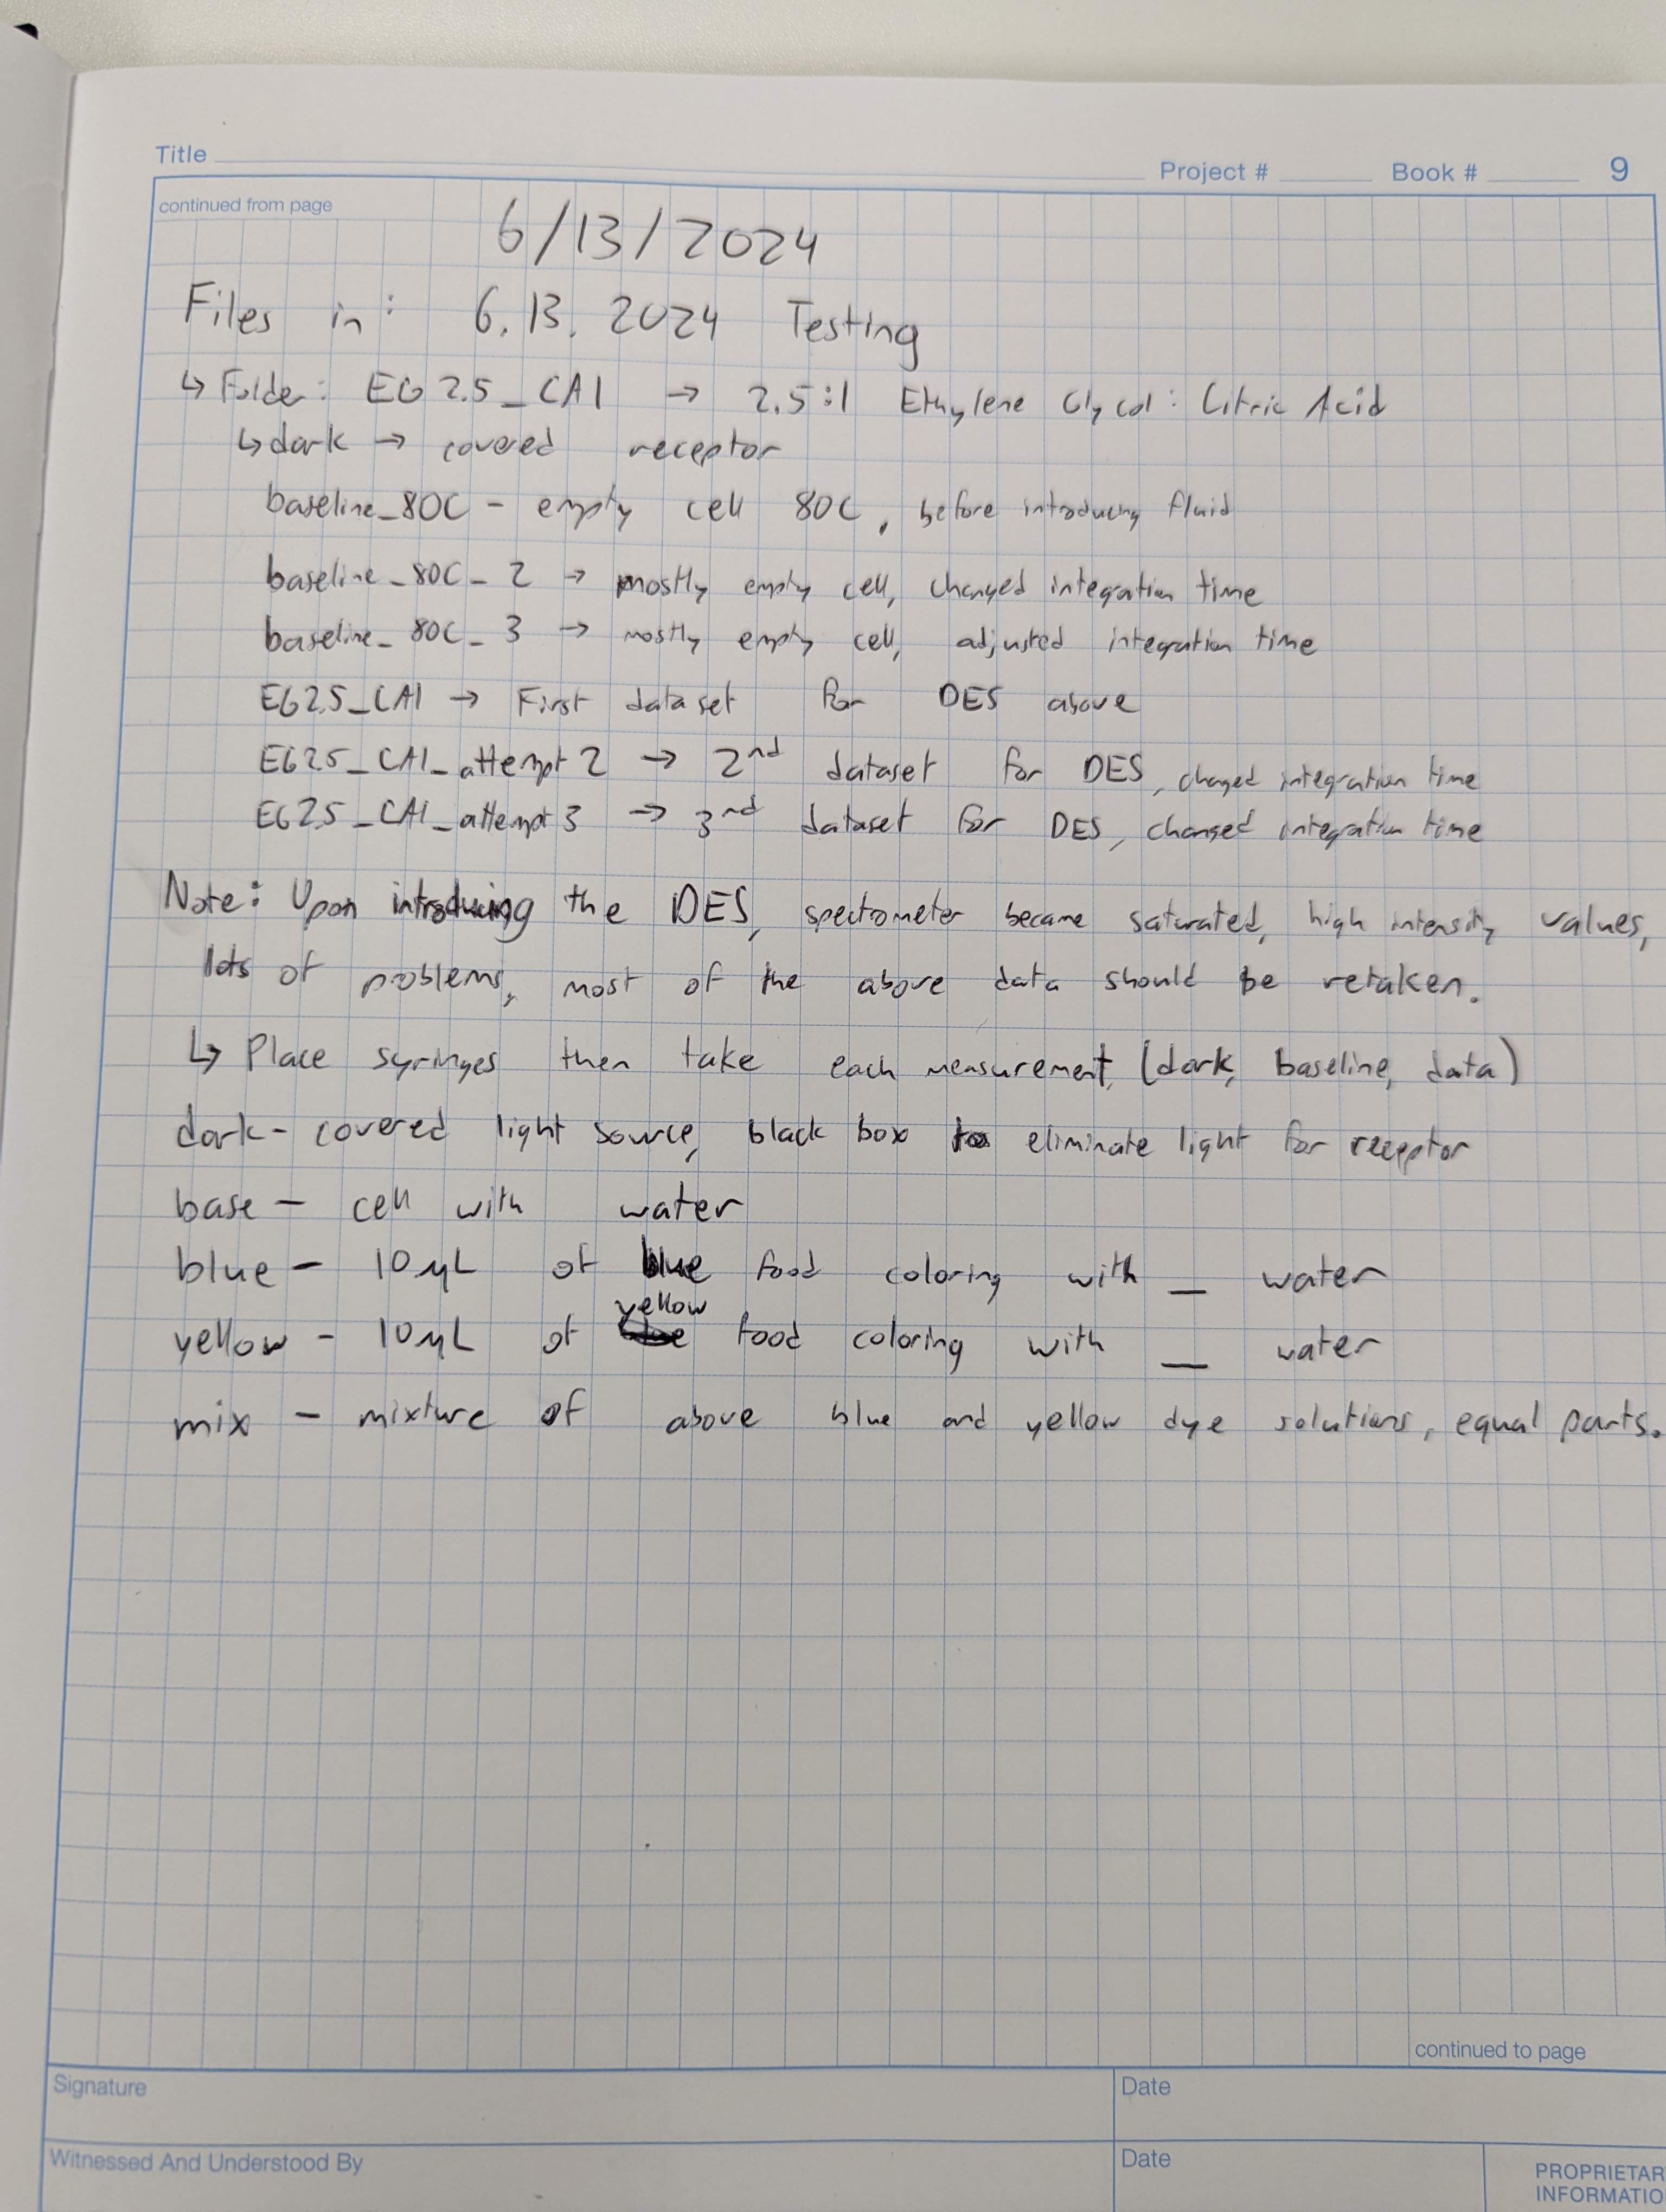 Title Project # Book # 9
continued from page
6/13/2024
Files in: 6.13.2024 Testing
↳ Folder: EG2.5_CA1 → 2.5:1 Ethylene Glycol: Citric Acid
↳ dark → covered receptor
baseline_80C - empty cell 80C, before introducing fluid
baseline_80C_2 → mostly empty cell, changed integration time
baseline_80C_3 → mostly empty cell, adjusted integration time
EG2.5_CA1 → First dataset for DES above
EG2.5_CA1_attempt 2 → 2nd dataset for DES, changed integration time
EG2.5_CA1_attempt 3 → 3nd dataset for DES, changed integration time
Note: Upon introducing the DES, spectrometer became saturated, high intensity values,
lots of problems, most of the above data should be retaken.
↳ Place syringes then take each measurement, (dark, baseline, data)
dark - covered light source, black box to eliminate light for receptor
base - cell with water
blue - 10 μL of blue food coloring with __ water
yellow - 10 μL of yellow food coloring with __ water
mix - mixture of above blue and yellow dye solutions, equal parts.
continued to page
Signature Date
Witnessed And Understood By Date
PROPRIETAR
INFORMATIO